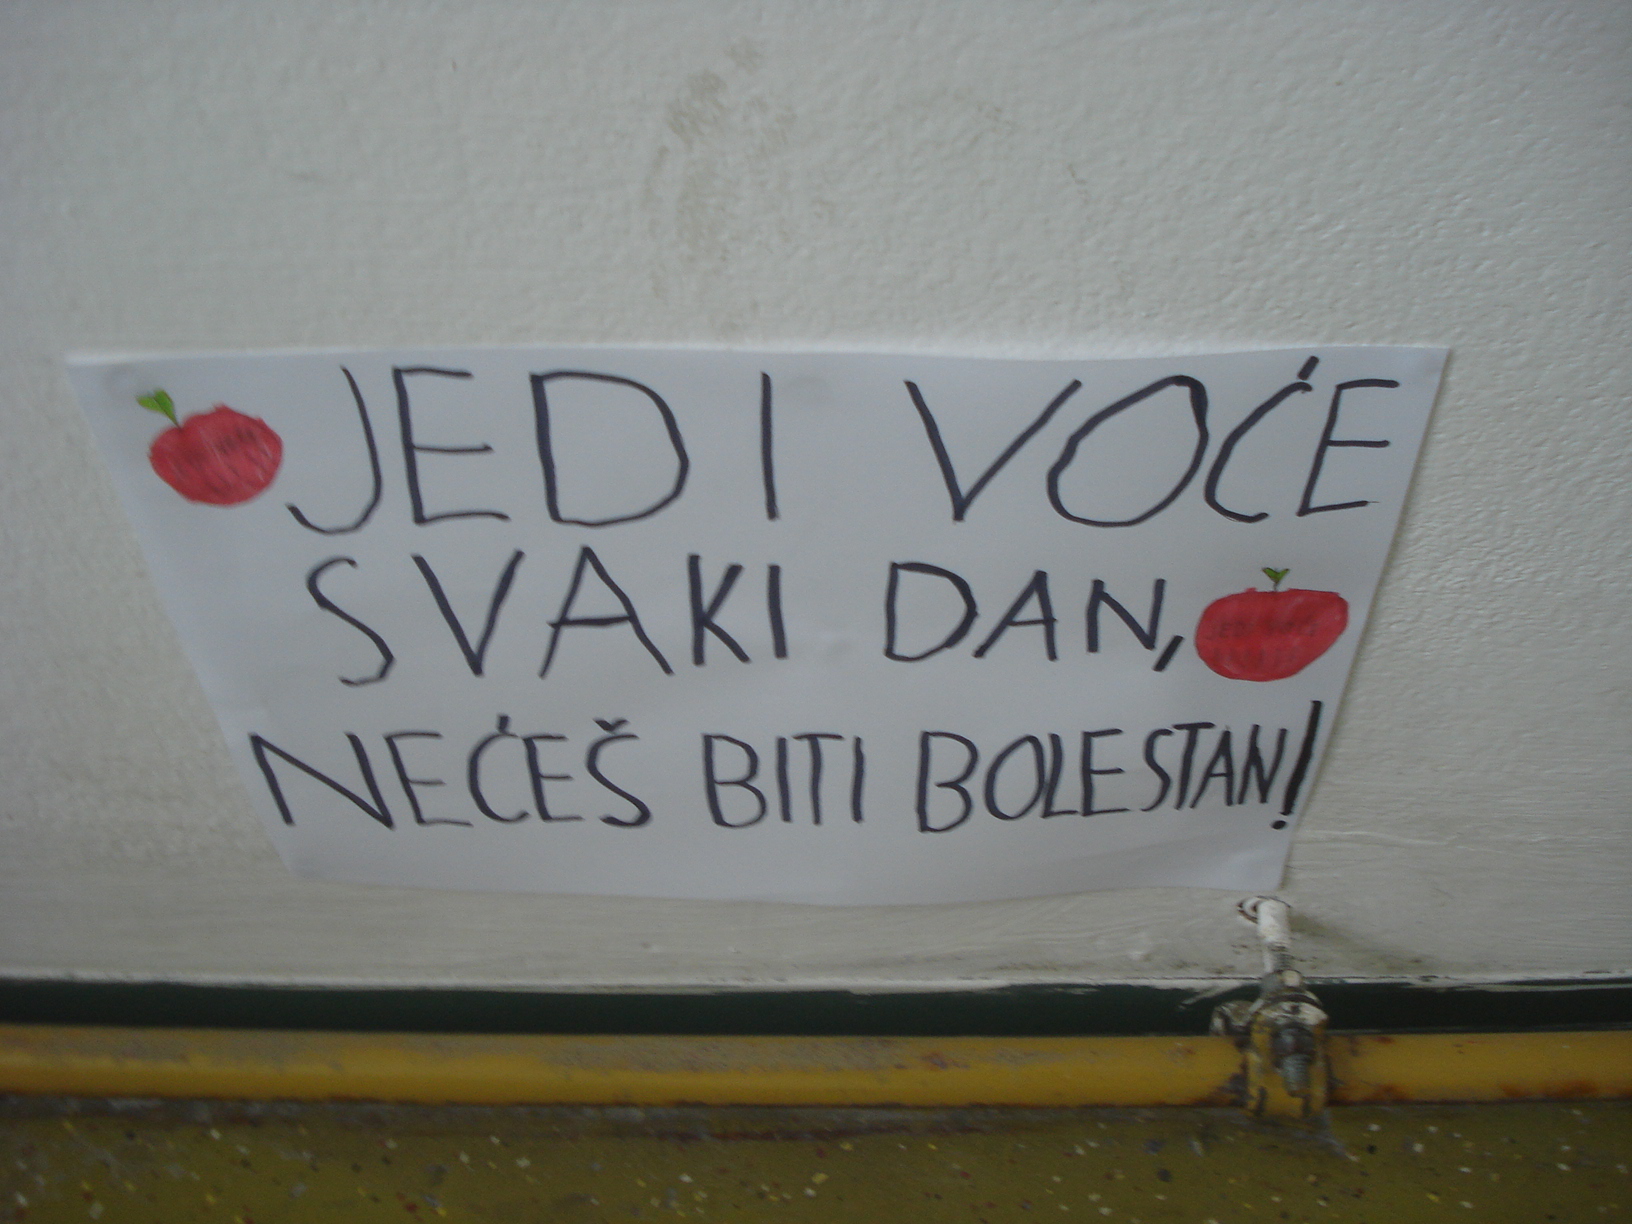 JEDI VOĆE
SVAKI DAN,
NEĆEŠ BITI BOLESTAN!